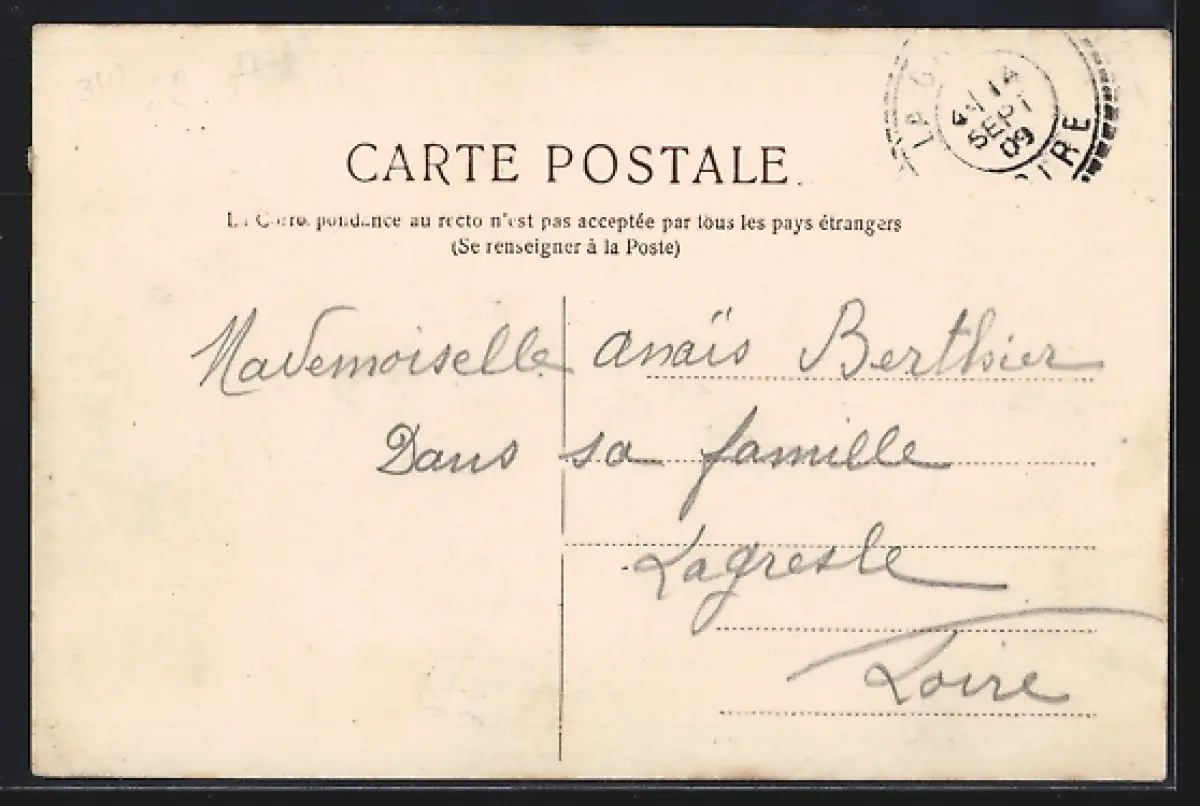 CARTE POSTALE
La Correspondance au recto n'est pas acceptée par tous les pays étrangers
(Se renseigner à la Poste)
LA
14
SEPT
09
Mademoiselle Anaïs Berthier
Dans sa famille
Lagresle
Loire